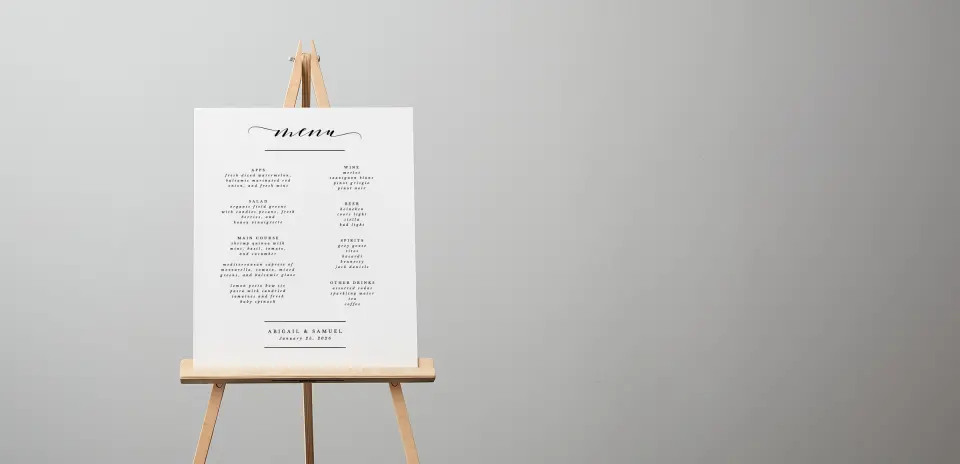 menu
APPS
fresh diced watermelon,
balsamic marinated red
onion, and fresh mint
SALAD
organic field greens
with candied pecans, fresh
berries, and
honey vinaigrette
MAIN COURSE
shrimp quinoa with
mint, basil, tomato,
and cucumber
mediterranean caprese of
mozzarella, tomato, mixed
greens, and balsamic glaze
lemon pesto bow tie
pasta with sundried
tomatoes and fresh
baby spinach
WINE
merlot
sauvignon blanc
pinot grigio
pinot noir
BEER
heineken
coors light
stella
bud light
SPIRITS
grey goose
titos
bacardi
hennessy
jack daniels
OTHER DRINKS
assorted sodas
sparkling water
tea
coffee
ABIGAIL & SAMUEL
January 25,